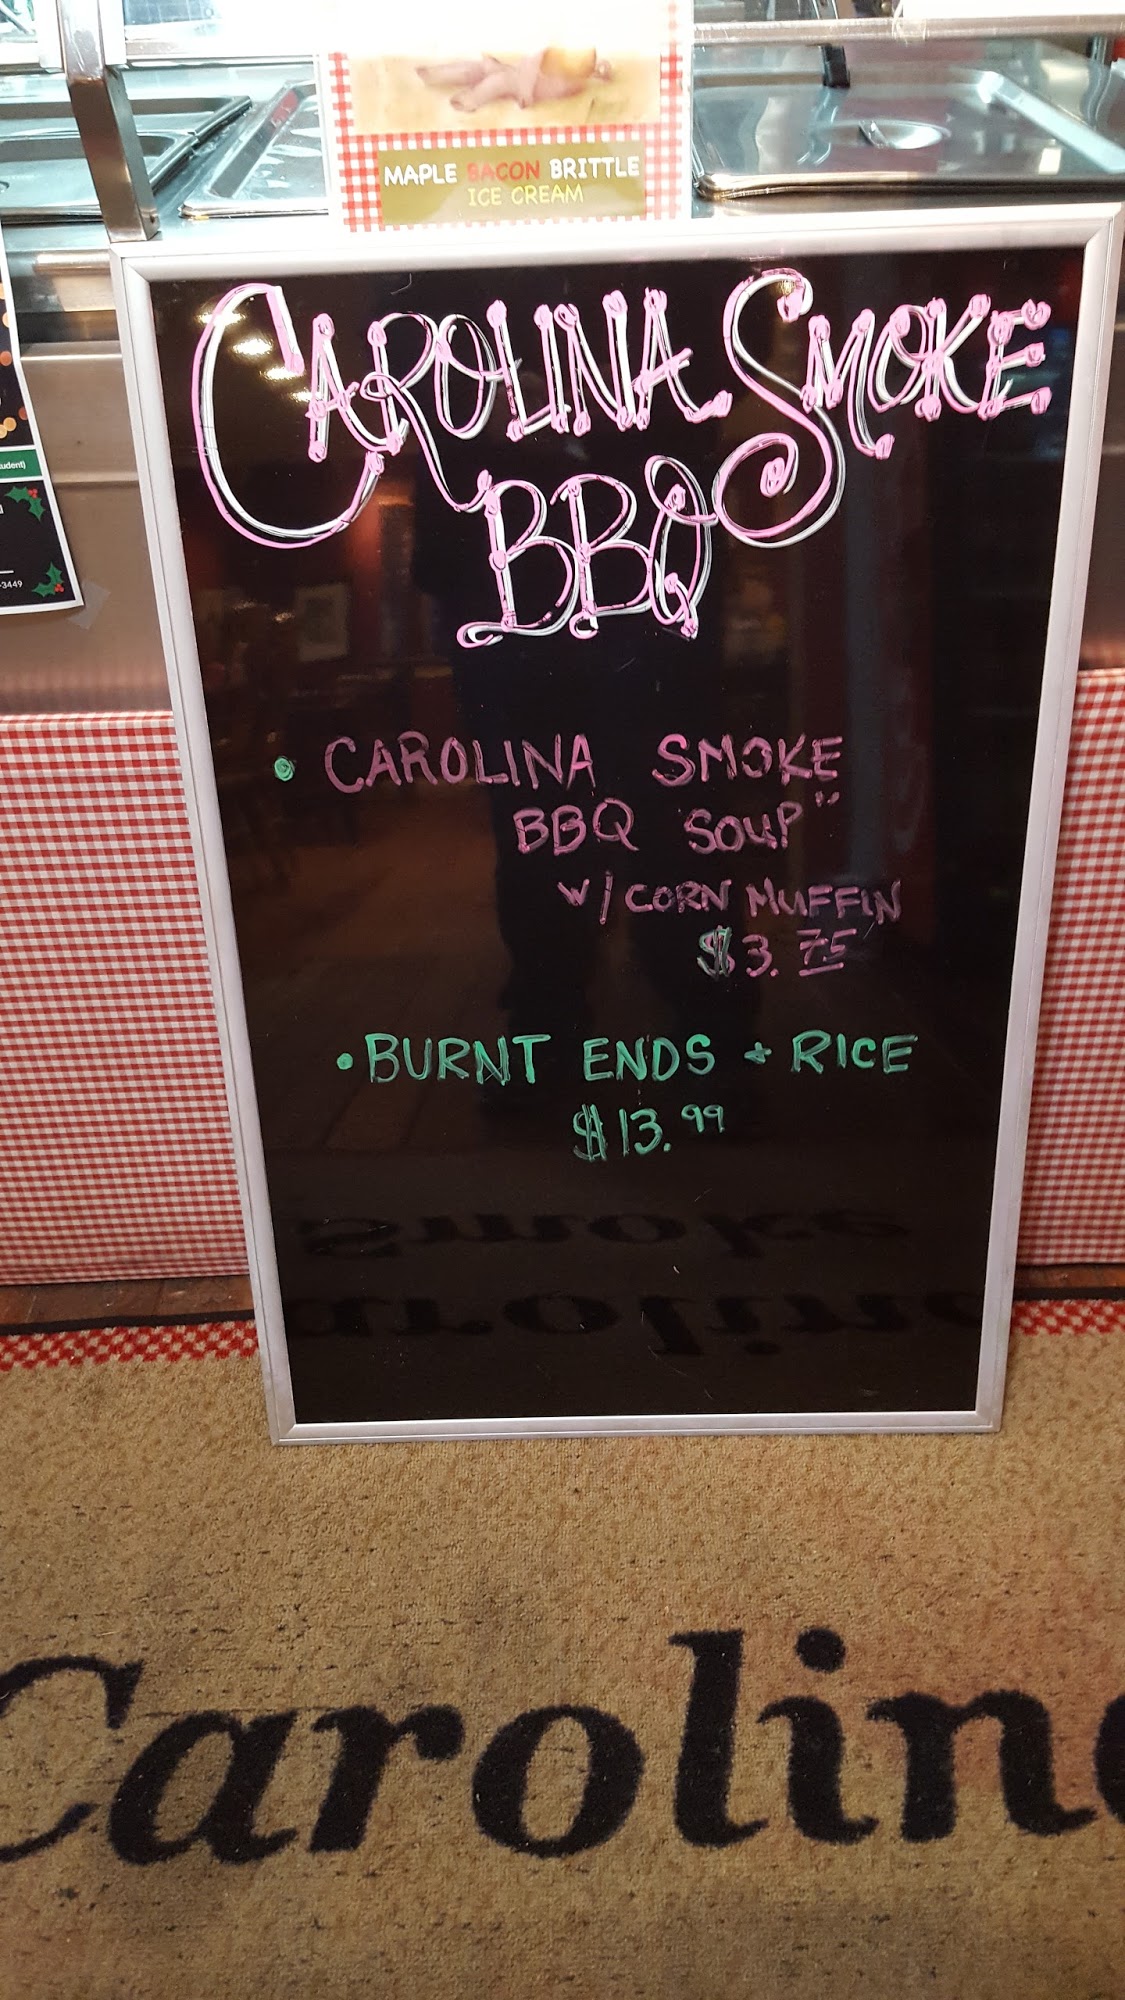 MAPLE BACON BRITTLE
ICE CREAM
CAROLINA SMOKE
BBQ
• CAROLINA SMOKE
BBQ SOUP"
w/ CORN MUFFIN
$3.75
• BURNT ENDS + RICE
$13.99
udent)
-3449
Smoke
arolin
Carolin